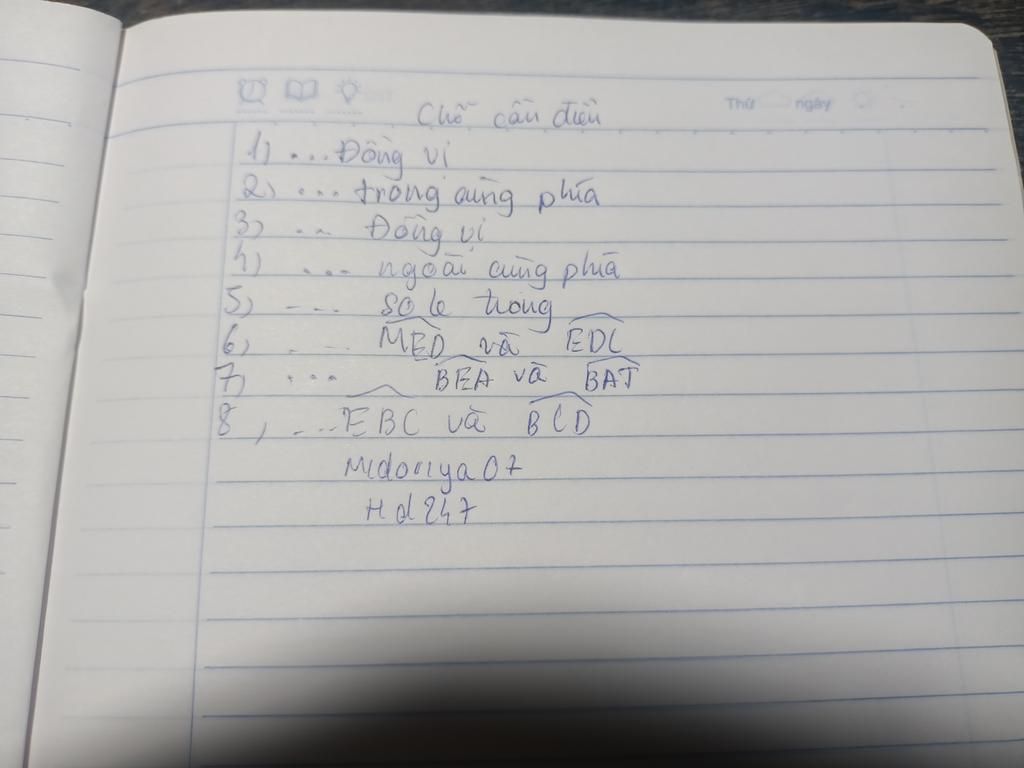 Thứ ngày
Chỗ cần điền
1) ... Đồng vị
2) ... trong cùng phía
3) ... Đồng vị
4) ... ngoài cùng phía
5) ... so le trong
6) ... MED và EDC
7) ... BEA và BAT
8, ... EBC và BCD
Midoriya07
Hd247